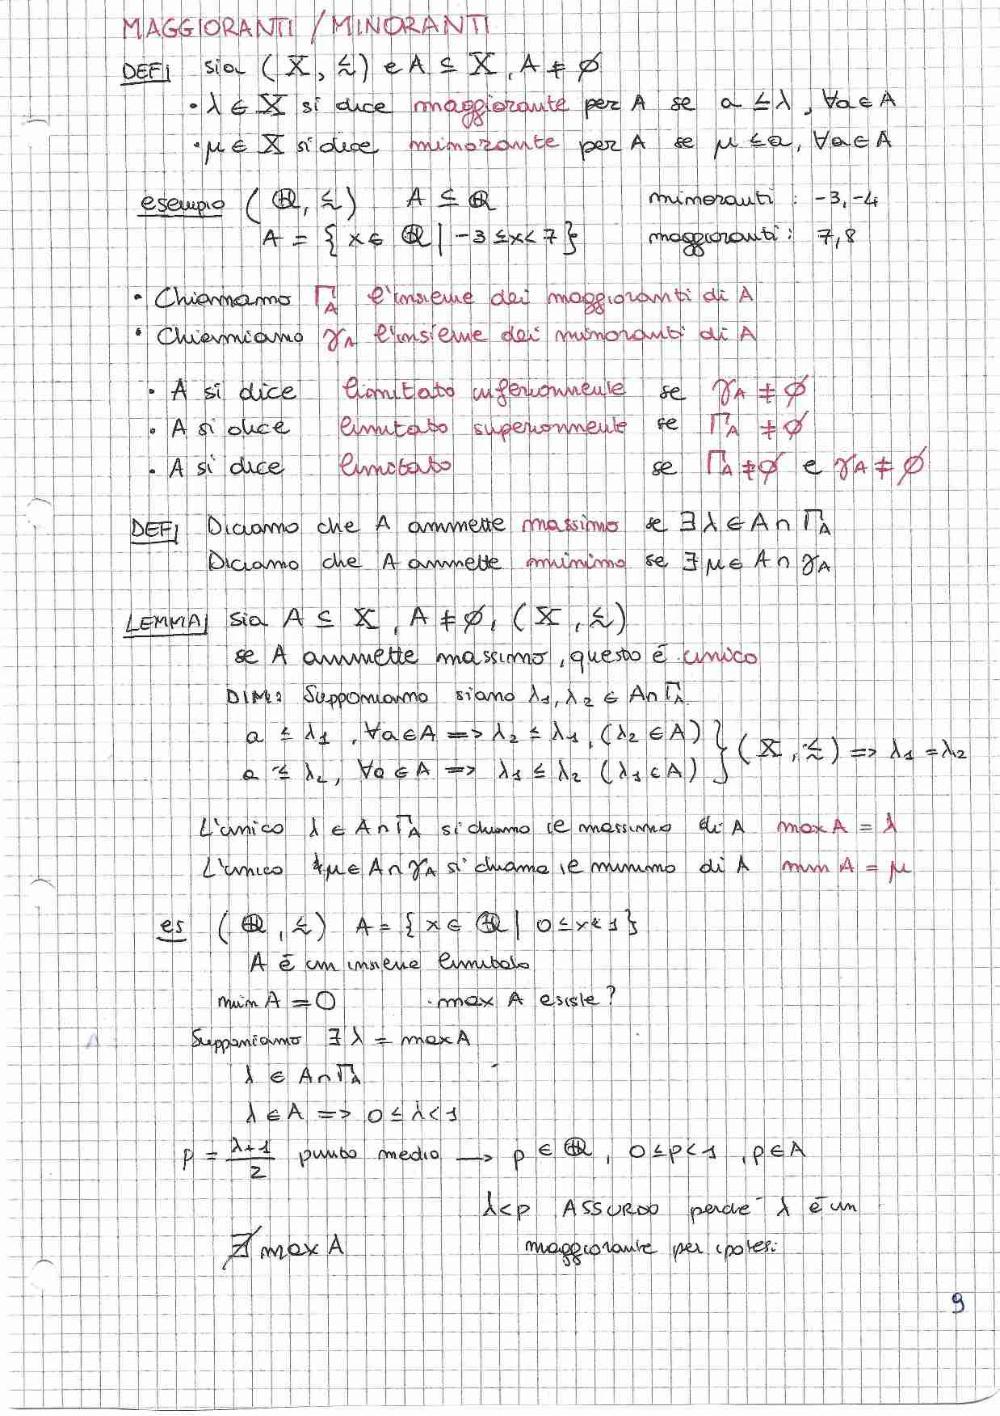 MAGGIORANTI / MINORANTI
DEF| sia (X, ≤) e A ⊆ X, A ≠ ∅
• λ ∈ X si dice maggiorante per A se a ≤ λ, ∀a ∈ A
• μ ∈ X si dice minorante per A se μ ≤ a, ∀a ∈ A
esempio (Q, ≤) A ⊆ Q minoranti : -3, -4
A = { x ∈ Q | -3 ≤ x < 7 } maggioranti : 7, 8
• Chiamiamo Γ_A l'insieme dei maggioranti di A
• Chiamiamo γ_A l'insieme dei minoranti di A
• A si dice limitato inferiormente se γ_A ≠ ∅
• A si dice limitato superiormente se Γ_A ≠ ∅
• A si dice limitato se Γ_A ≠ ∅ e γ_A ≠ ∅
DEF| Diciamo che A ammette massimo se ∃ λ ∈ A ∩ Γ_A
Diciamo che A ammette minimo se ∃ μ ∈ A ∩ γ_A
LEMMA| sia A ⊆ X, A ≠ ∅, (X, ≤)
se A ammette massimo, questo é unico
DIM: Supponiamo siano λ1, λ2 ∈ A ∩ Γ_A
a ≤ λ1, ∀a ∈ A => λ2 ≤ λ1, (λ2 ∈ A) } (X, ≤) => λ1 = λ2
a ≤ λ2, ∀a ∈ A => λ1 ≤ λ2 (λ1 ∈ A)
L'unico λ ∈ A ∩ Γ_A si chiama il massimo di A max A = λ
L'unico μ ∈ A ∩ γ_A si chiama il minimo di A min A = μ
es (Q, ≤) A = { x ∈ Q | 0 ≤ x < 1 }
A é un insieme limitato
min A = 0 . max A esiste?
Supponiamo ∃ λ = max A
λ ∈ A ∩ Γ_A
λ ∈ A => 0 ≤ λ < 1
p = (λ+1)/2 punto medio → p ∈ Q, 0 ≤ p < 1, p ∈ A
λ < p ASSURDO perché λ é un
∄ max A maggiorante per ipotesi
9